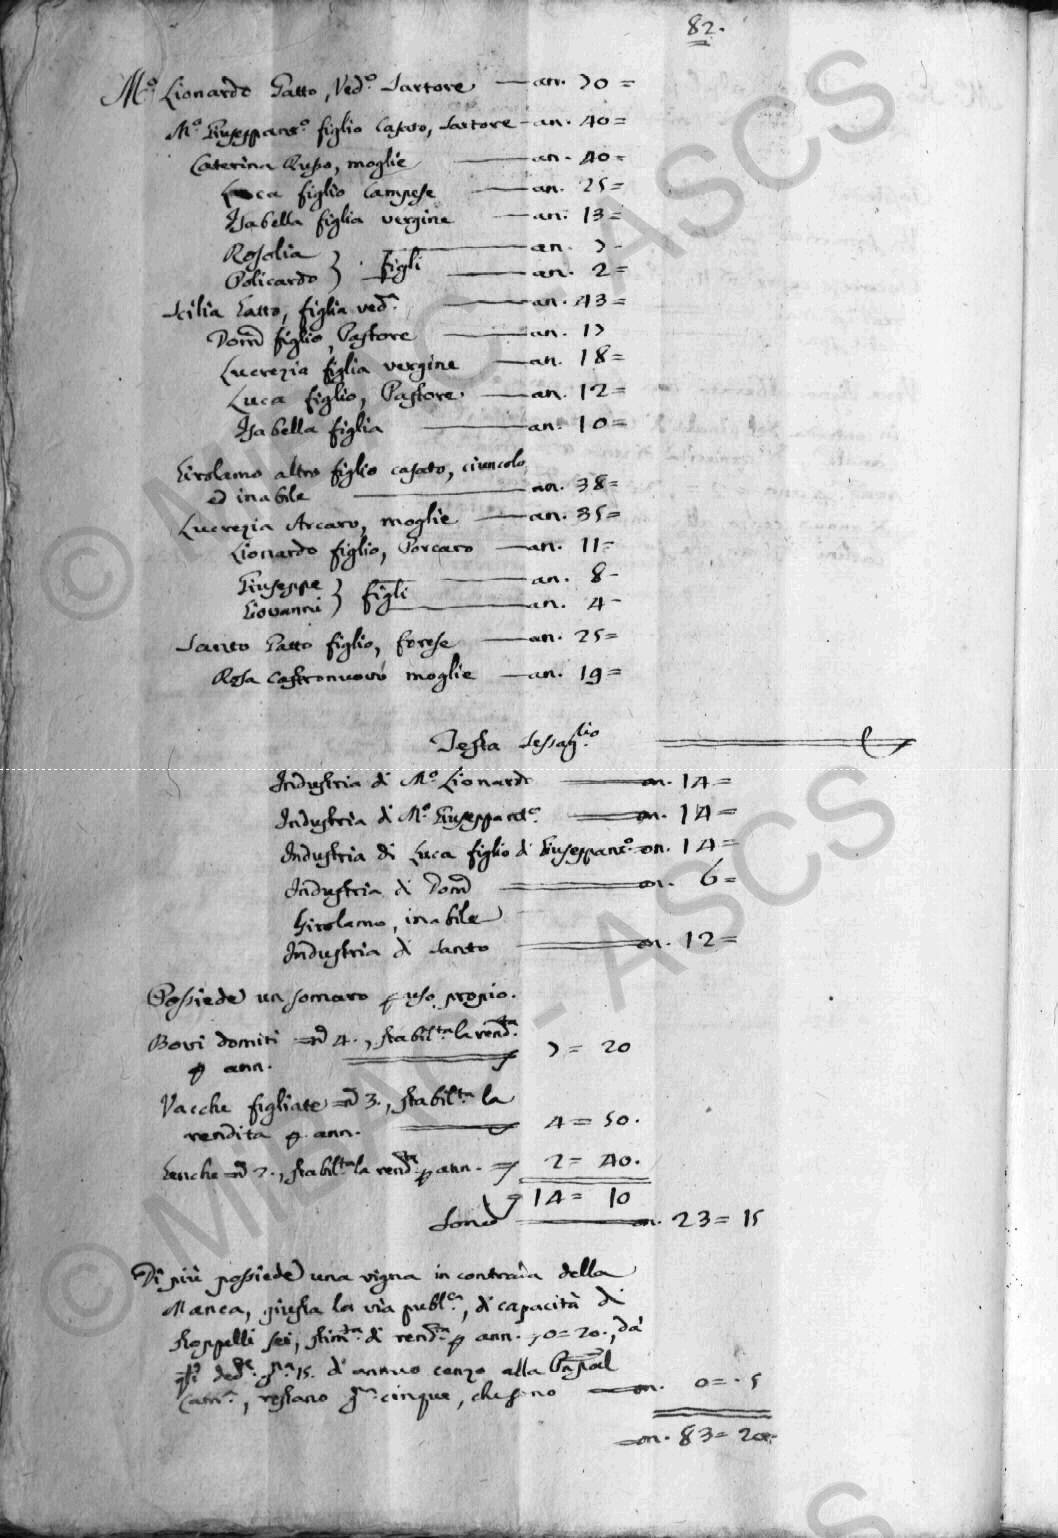 82.
M.º Lionardo Gatto, Ved.º Sartore — an. 70 =
M.º Giuseppant.º figlio Casato, Sartore - an. 40 =
Caterina Russo, moglie — an. 40 =
Luca figlio Campese — an. 25 =
Isabella figlia vergine — an. 13 =
Rosolia } figli — an. 7 -
Policardo } — an. 2 =
Scilia Gatto, figlia ved.ª — an. 43 =
Dom.co figlio, Pastore — an. 17
Lucrezia figlia vergine — an. 18 =
Luca figlio, Pastore — an. 12 =
Isabella figlia — an. 10 =
Girolamo altro figlio casato, ciuncolo,
ed inabile — an. 38 =
Lucrezia Arcaro, moglie — an. 35 =
Lionardo figlio, Porcaro — an. 11 =
Giuseppe } figli — an. 8 -
Giovanni } — an. 4 -
Santo Gatto figlio, forese — an. 25 =
Rosa Castronuovo moglie — an. 19 =
Testa
Industria di M.º Lionardo — on. 14 =
Industria di M.º Giuseppant.º — on. 14 =
Industria di Luca figlio di Giuseppant.º on. 14 =
Industria di Dom.co — on. 6 =
Girolamo, inabile
Industria di Santo — on. 12 =
Possiede un somaro p uso propio.
Bovi domiti nº 4., stabil.ta la rend.ta
p ann. 7 = 20
Vacche figliate nº 3., stabil.ta la
rendita p ann. 4 = 50.
Genche nº 2., stabil.ta la rend.ta p ann. 2 = 40.
14 = 10
Sono — on. 23 = 15
Di più possiede una vigna in contrada della
Manca, giusta la via publ.ca, di capacità di
stoppelli sei, stim.ta di rend.ta p ann. 0 = 20., da
q.li ded.te g.na 15. di annuo cenzo alla P̄npal
Cam.ª, restano g.na cinque, che sono — on. 0 = . 5
on. 83 = 20.
© MIBAC - ASCS
© MIBAC - ASCS